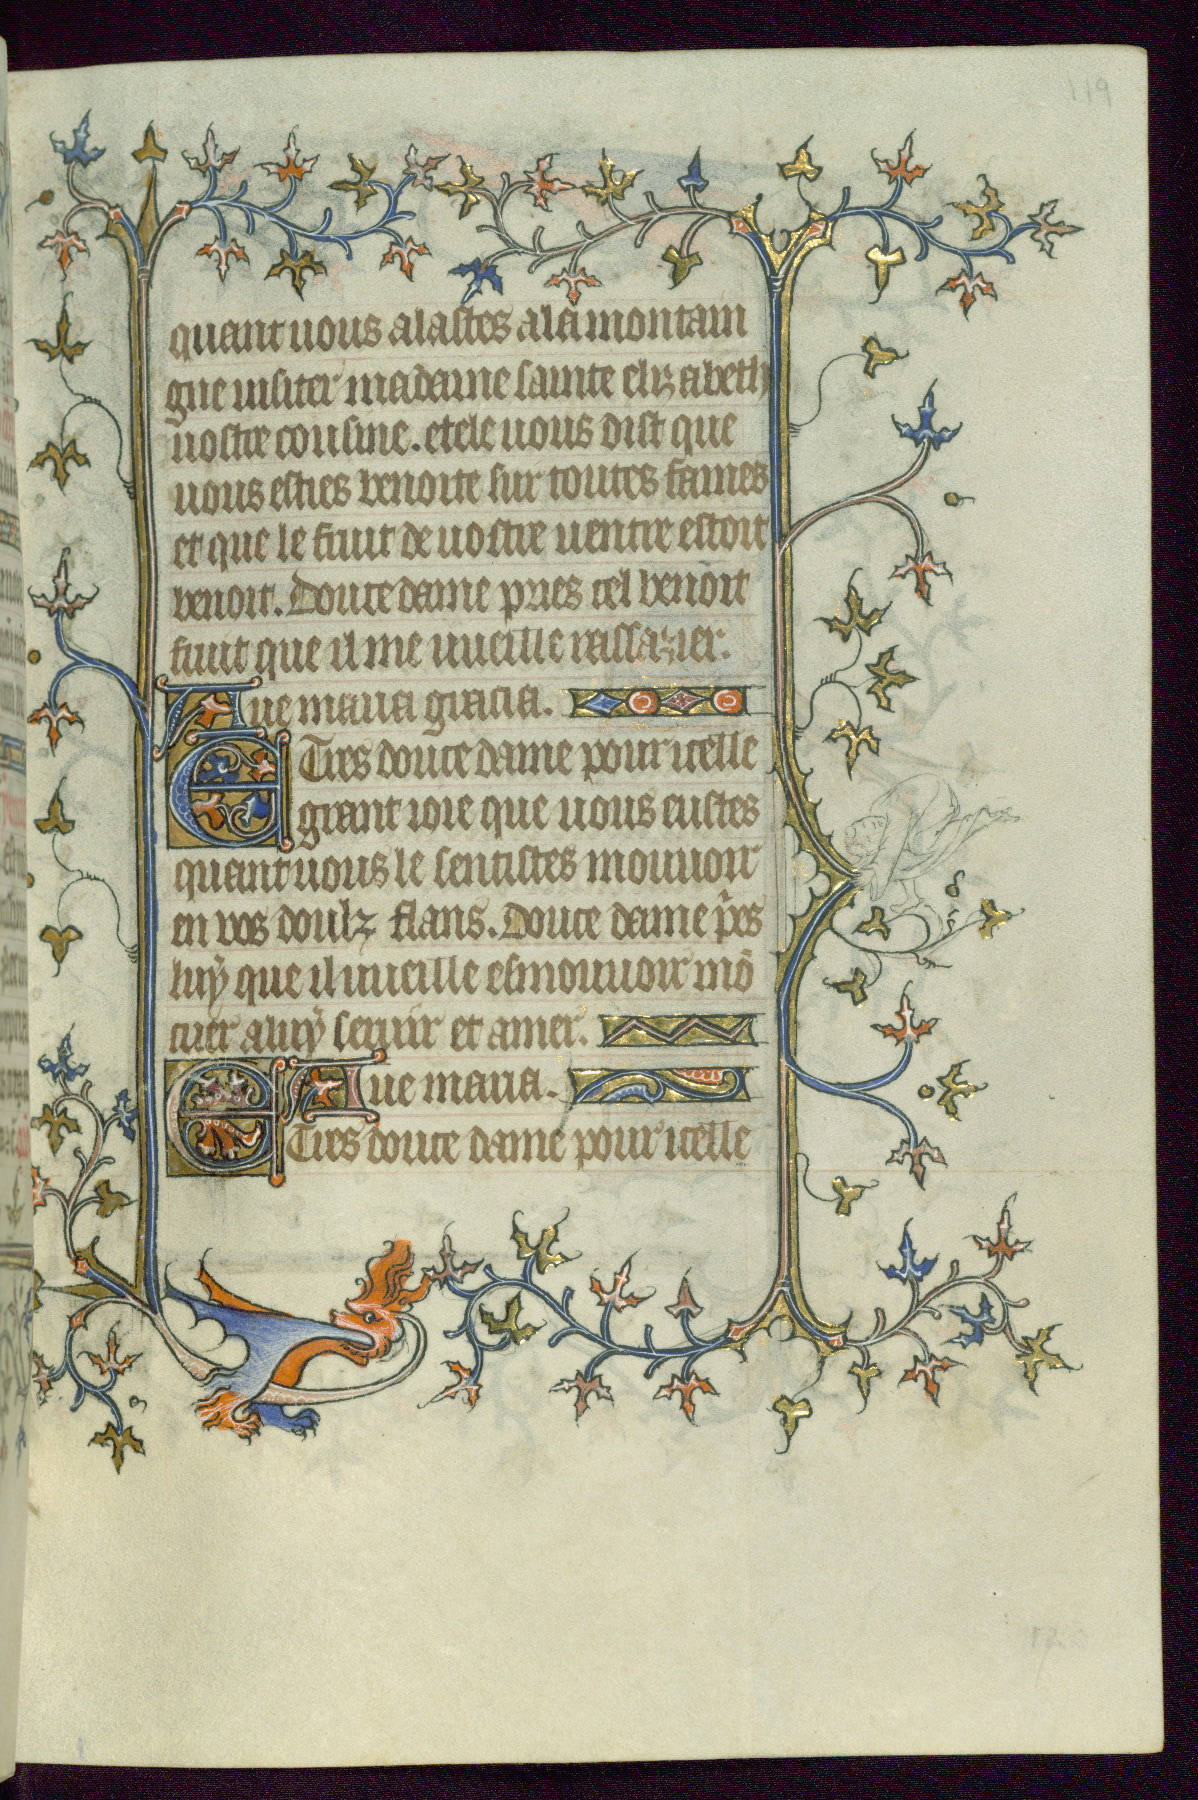 119
quant uous alastes a la montain
gne uisiter madame sainte elyzabeth
uostre cousine. et ele uous dist que
uous esties benoite sur toutes fames
et que le fruit de uostre uentre estoit
benoit. Douce dame pries cel benoit
fruit que il me uueille rassazier.
Aue maria gracia.
E Tres douce dame pour icelle
grant ioie que uous eustes
quant uous le sentistes mouuoir
en vos doulz flans. Douce dame p̃es
luy que il uueille esmouuoir mō
cuer a luy seruir et amer.
Aue maria.
E Tres douce dame pour icelle